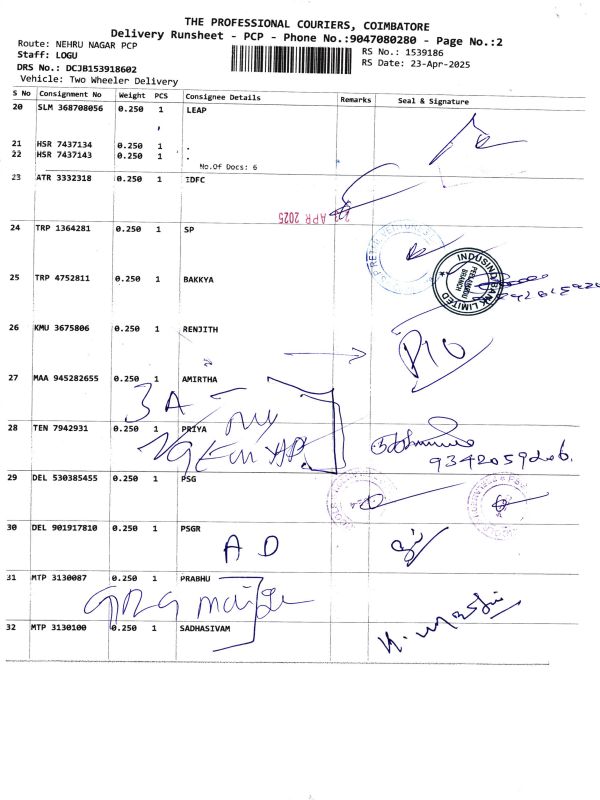 THE PROFESSIONAL COURIERS, COIMBATORE
Delivery Runsheet - PCP - Phone No.:9047080280 - Page No.:2
Route: NEHRU NAGAR PCP
RS No.: 1539186
Staff: LOGU
RS Date: 23-Apr-2025
DRS No.: DCJB153918602
Vehicle: Two Wheeler Delivery
S No Consignment No Weight PCS Consignee Details Remarks Seal & Signature
20 SLM 368708056 0.250 1 LEAP
21 HSR 7437134 0.250 1 .
22 HSR 7437143 0.250 1 .
No.Of Docs: 6
23 ATR 3332318 0.250 1 IDFC
APR 2025
24 TRP 1364281 0.250 1 SP
INDUSIND BANK LIMITED
BRANCH
25 TRP 4752811 0.250 1 BAKKYA
26 KMU 3675806 0.250 1 RENJITH
27 MAA 945282655 0.250 1 AMIRTHA
3 A
28 TEN 7942931 0.250 1 PRIYA
29 DEL 530385455 0.250 1 PSG
30 DEL 901917810 0.250 1 PSGR
A D
31 MTP 3130087 0.250 1 PRABHU
32 MTP 3130100 0.250 1 SADHASIVAM